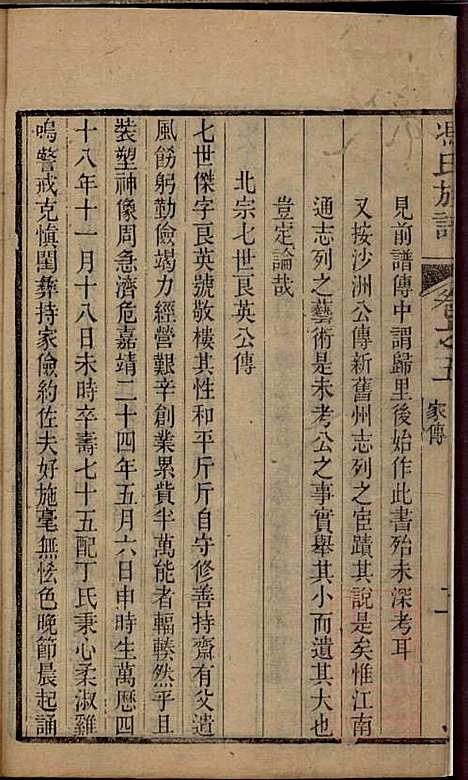 馮氏族譜 卷之五 家傳 二
見前譜傳中謂歸里後始作此書殆未深考耳
又按沙洲公傳新舊州志列之宦蹟其說是矣惟江南
通志列之藝術是未考公之事實舉其小而遺其大也
豈定論哉
北宗七世良英公傳
七世傑字良英號敬樓其性和平斤斤自守修善持齋有父遺
風飭躬勤儉竭力經營艱辛創業累貲半萬能者輻輳然乎且
裝塑神像周急濟危嘉靖二十四年五月六日申時生萬歷四
十八年十一月十八日未時卒壽七十五配丁氏秉心柔淑雞
鳴警戒克慎閨彝持家儉約佐夫好施毫無怯色晚節晨起誦